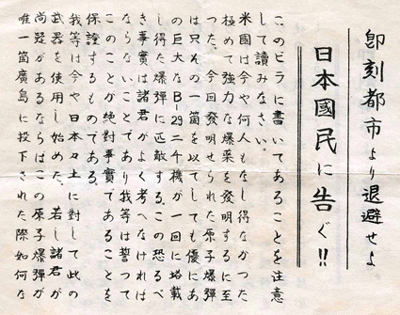 即刻都市より退避せよ
日本國民に告ぐ!!
このビラに書いてあることを注意
して讀みなさい。
米國は今や何人もなし得なかった
極めて強力な爆薬を發明するに至
った。今回發明せられた原子爆弾
は只その一箇を以てしても優にあ
の巨大なB-29二千機が一回に搭載
し得た爆弾に匹敵する。この恐るべ
き事實は諸君がよく考へなければ
ならないことであり我等は誓って
このことが絶対事實であることを
保證するものである。
我等は今や日本々土に対して此の
武器を使用し始めた。若し諸君が
尚疑があるならばこの原子爆弾が
唯一箇廣島に投下された際如何な